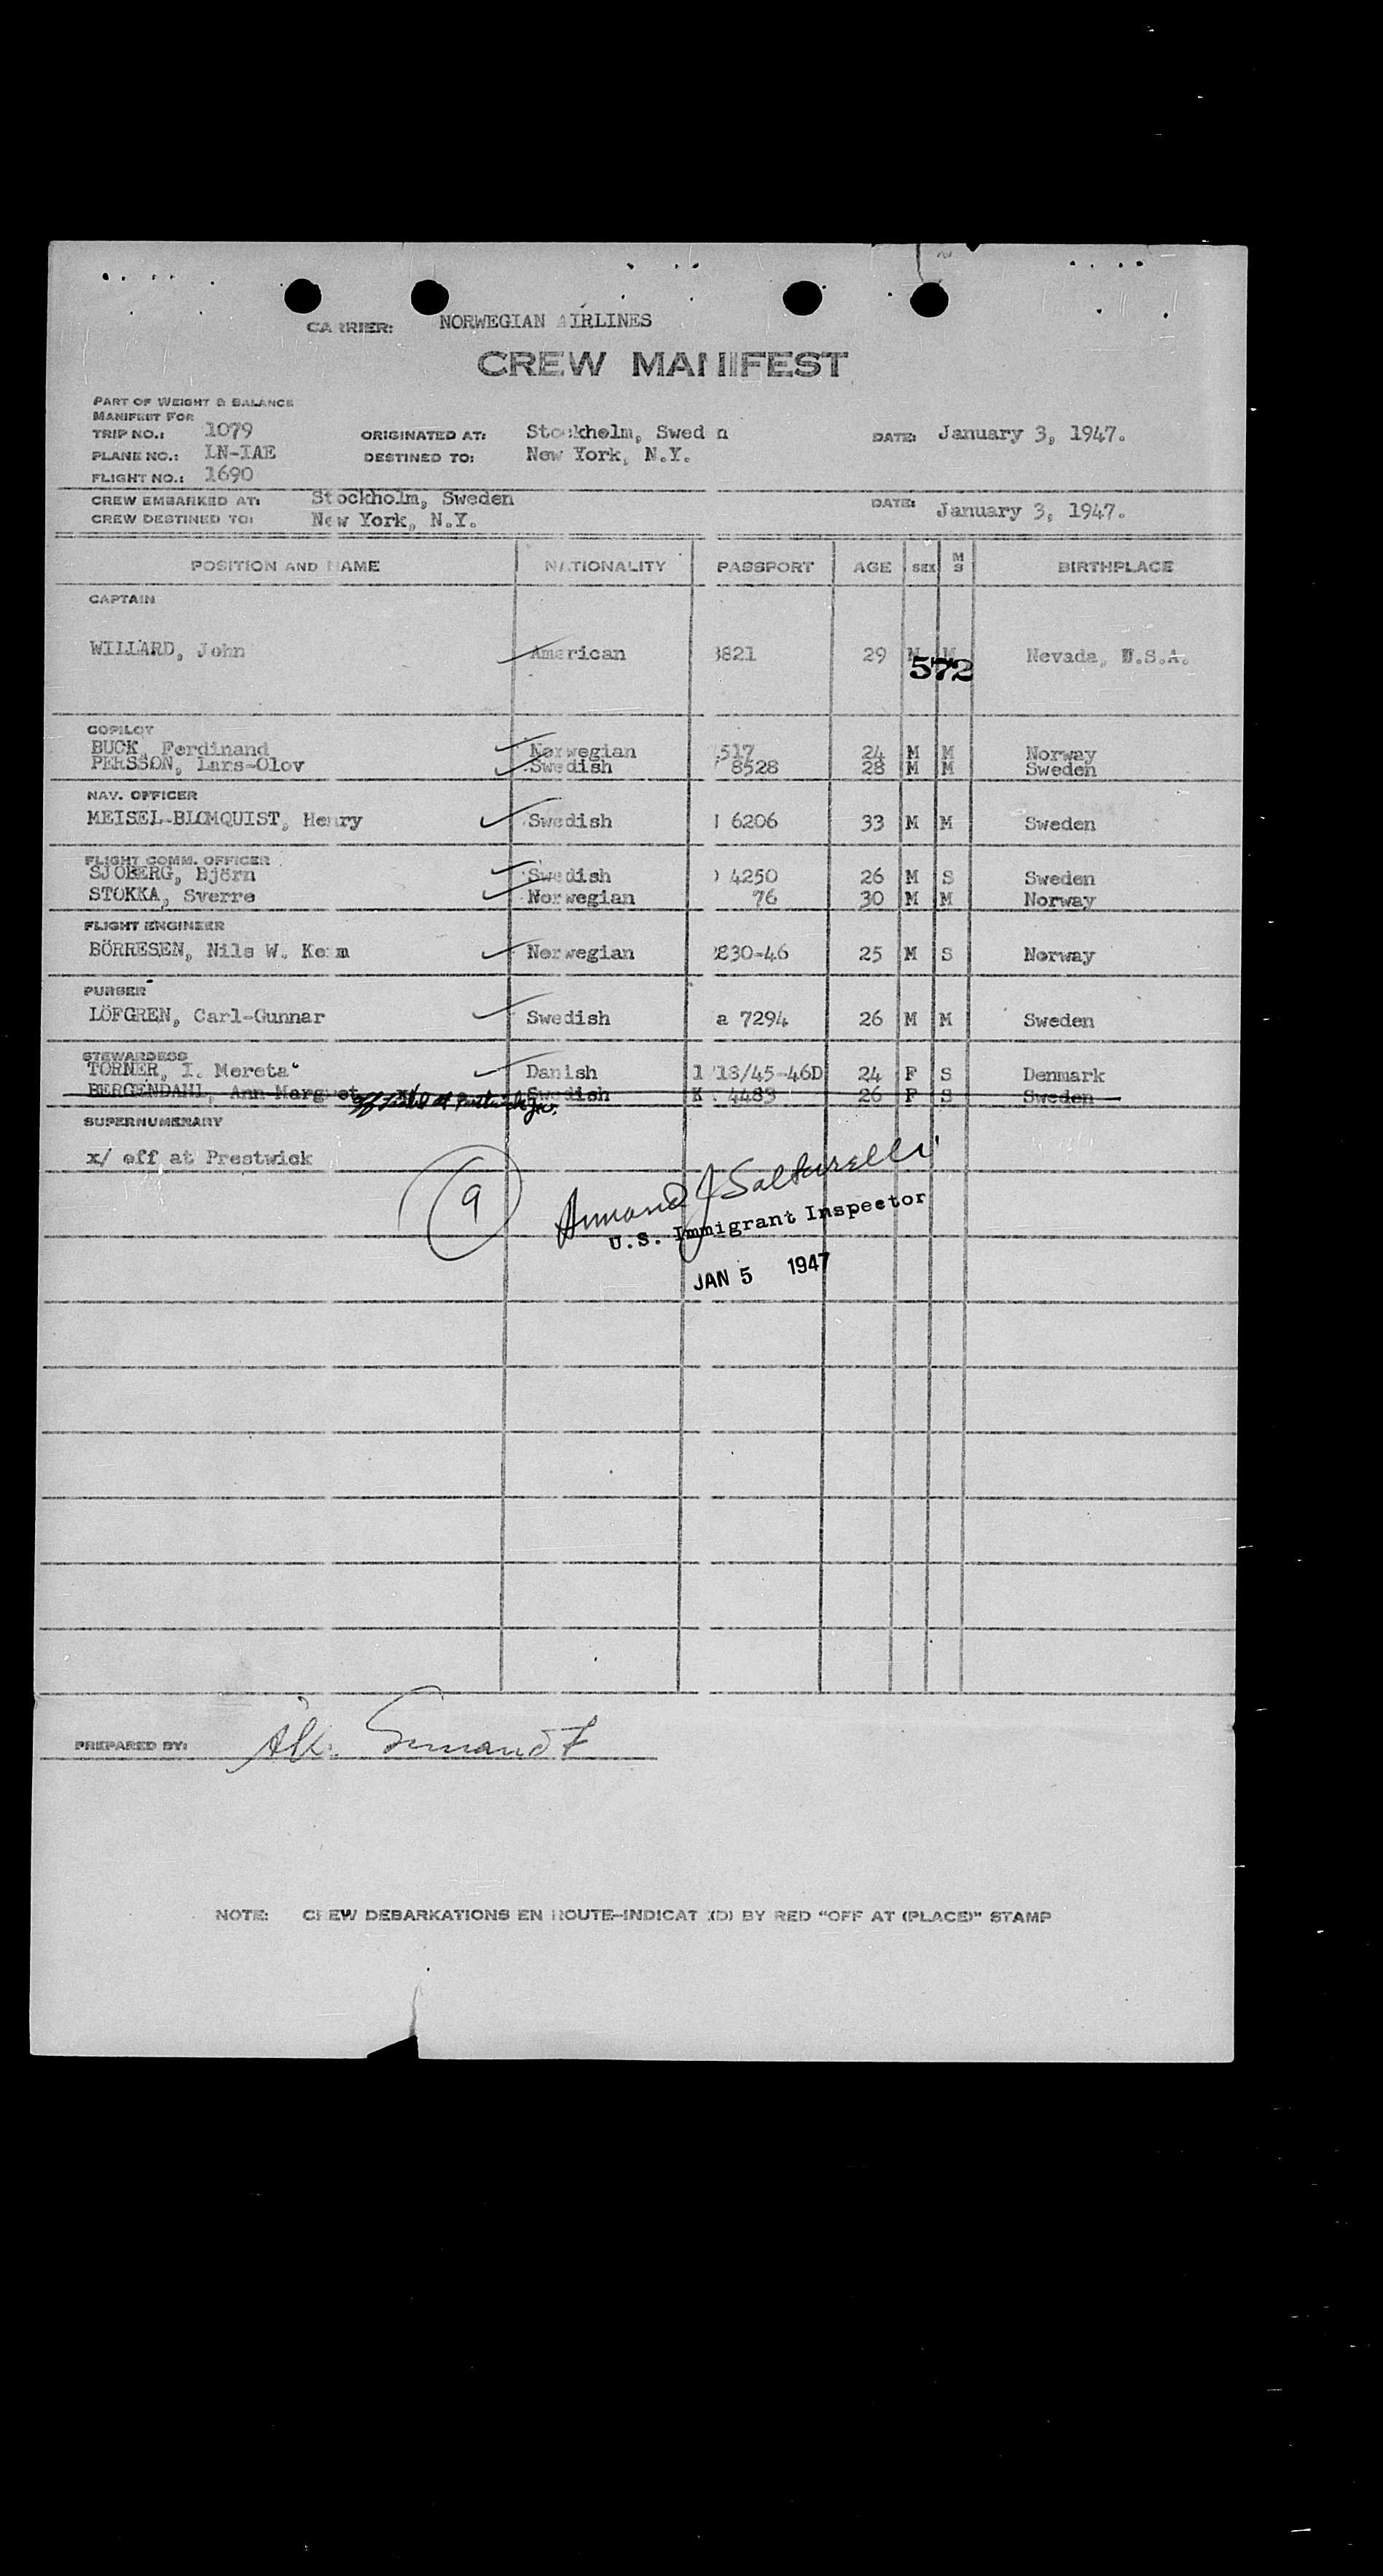 CARRIER: NORWEGIAN AIRLINES
CREW MANIFEST
PART OF WEIGHT & BALANCE
MANIFEST FOR
TRIP NO.: 1079 ORIGINATED AT: Stockholm, Swed n DATE: January 3, 1947.
PLANE NO.: LN-IAE DESTINED TO: New York, N.Y.
FLIGHT NO.: 1690
CREW EMBARKED AT: Stockholm, Sweden DATE: January 3, 1947.
CREW DESTINED TO: New York, N.Y.
POSITION AND NAME NATIONALITY PASSPORT AGE SEX M S BIRTHPLACE
CAPTAIN
WILLARD, John American 3821 29 M M Nevada, U.S.A.
572
COPILOT
BUCK, Ferdinand Norwegian 517 24 M M Norway
PERSSON, Lars-Olov Swedish 8528 28 M M Sweden
NAV. OFFICER
MEISEL-BLOMQUIST, Henry Swedish 6206 33 M M Sweden
FLIGHT COMM. OFFICER
SJOBERG, Björn Swedish 4250 26 M S Sweden
STOKKA, Sverre Norwegian 76 30 M M Norway
FLIGHT ENGINEER
BÖRRESEN, Nils W. Norwegian 830-46 25 M S Norway
PURSER
LÖFGREN, Carl-Gunnar Swedish a 7294 26 M M Sweden
STEWARDESS
TORNER, I. Mereta Danish 1 718/45-46D 24 F S Denmark
BERGENDAHL, Ann-Margret x/ Swedish K 4483 26 F S Sweden
off at Prestwick
SUPERNUMERARY
x/ off at Prestwick
9
Armand J Salturelli
U.S. Immigrant Inspector
JAN 5 1947
PREPARED BY:
NOTE: CREW DEBARKATIONS EN ROUTE-INDICAT (D) BY RED "OFF AT (PLACE)" STAMP